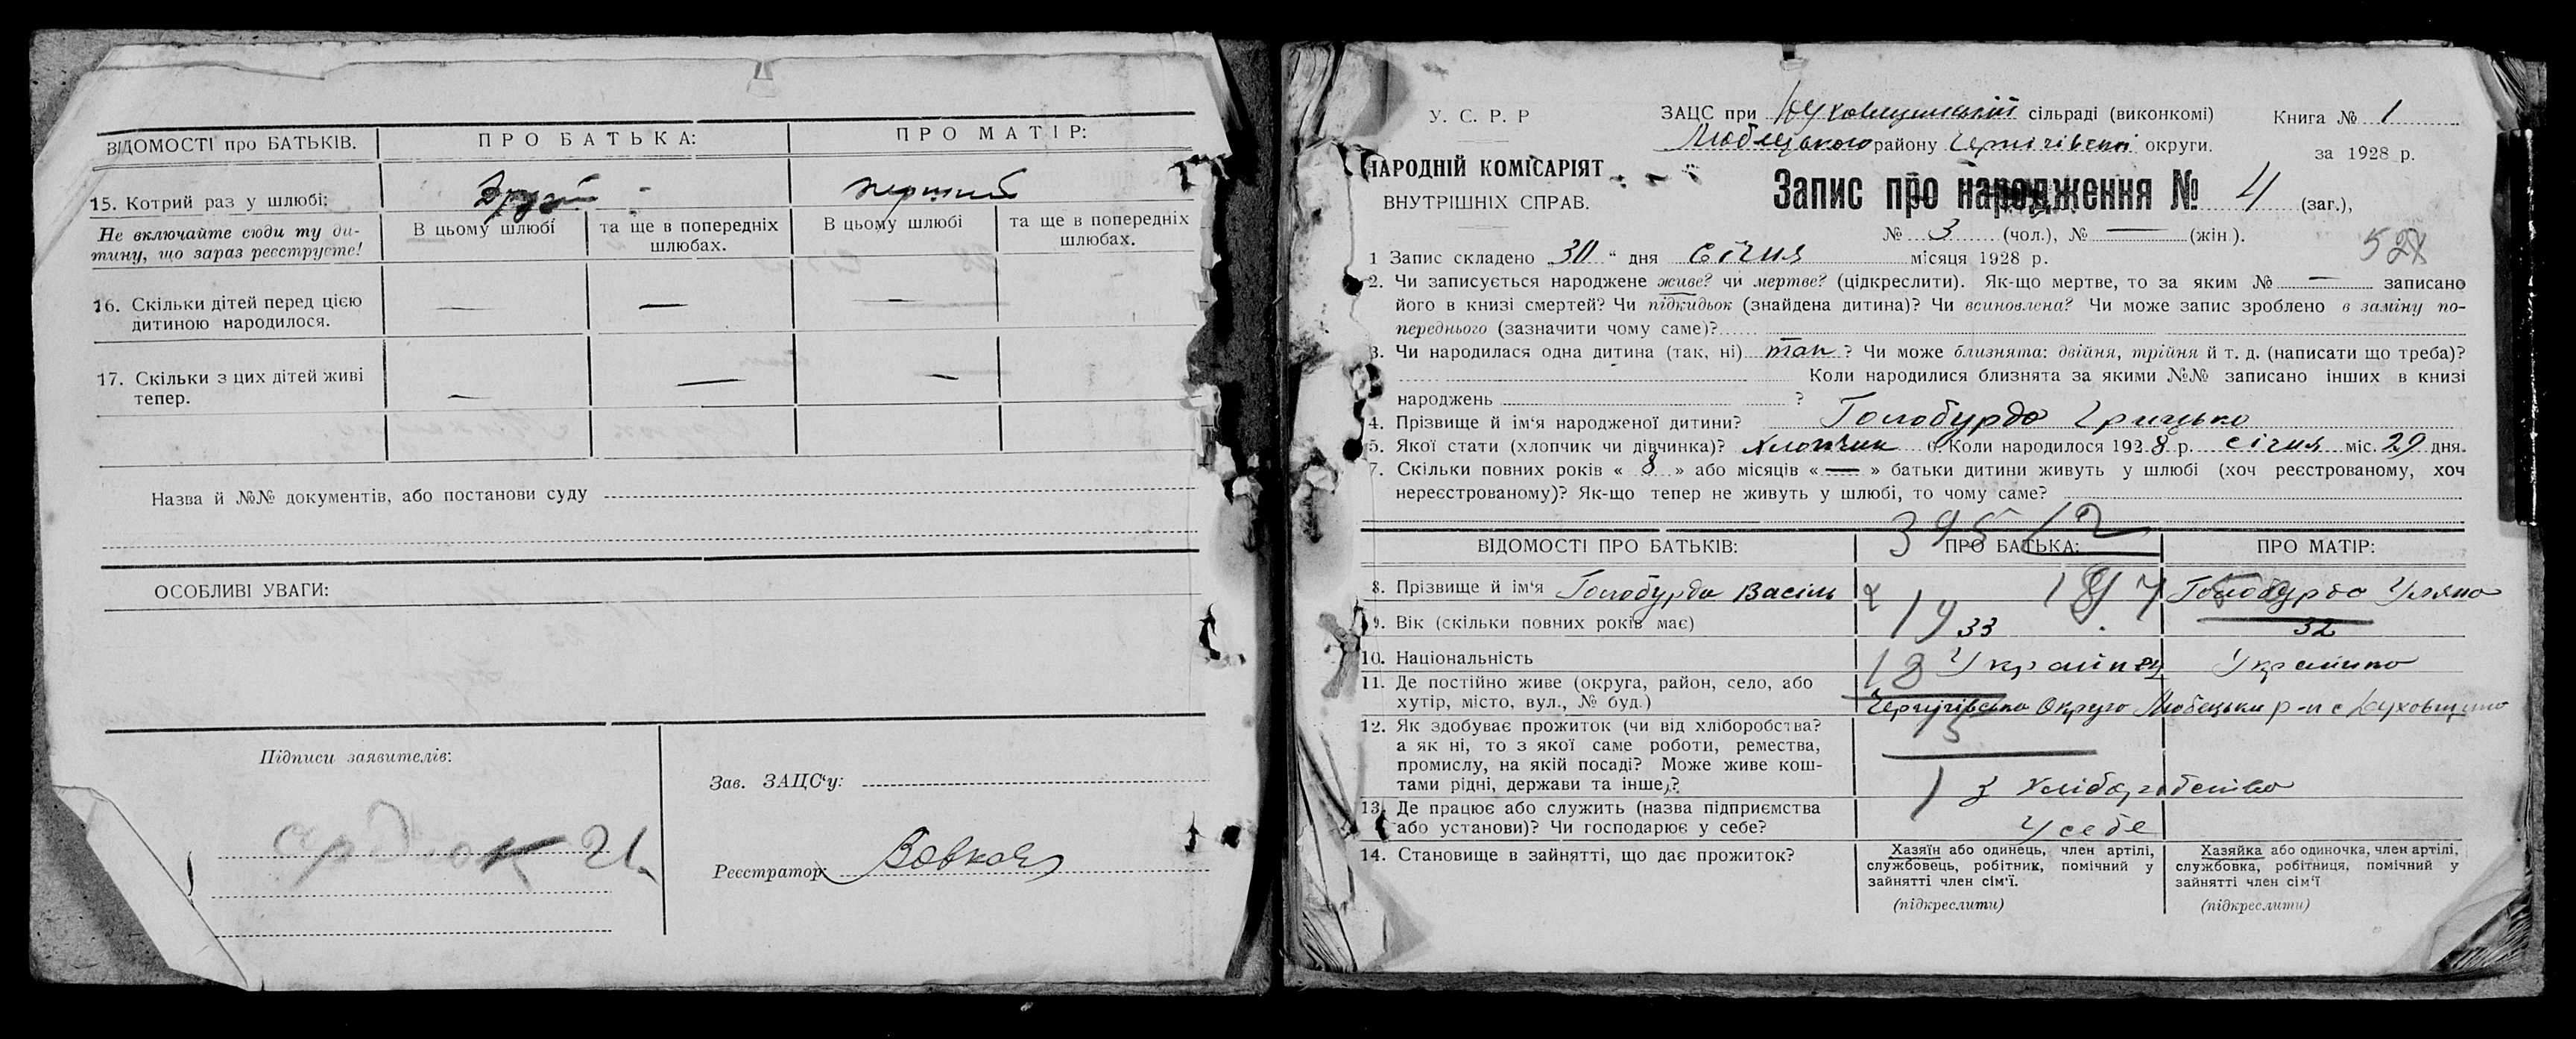 ВІДОМОСТІ про БАТЬКІВ.
ПРО БАТЬКА:
ПРО МАТІР:
15. Котрий раз у шлюбі:
Другий
перший
Не включайте сюди ту ди-
тину, що зараз реєструєте!
В цьому шлюбі
та ще в попередніх
шлюбах.
В цьому шлюбі
та ще в попередніх
шлюбах.
16. Скільки дітей перед цією
дитиною народилося.
— — —
17. Скільки з цих дітей живі
тепер.
— — —
Назва й №№ документів, або постанови суду
ОСОБЛИВІ УВАГИ:
Підписи заявителів:
Зав. ЗАЦС'у:
Реєстратор:
У. С. Р. Р
НАРОДНІЙ КОМІСАРІЯТ
ВНУТРІШНІХ СПРАВ.
ЗАЦС при сільраді (виконкомі)
Любецького району Чернігівської округи.
Книга № 1
за 1928 р.
Запис про народження № 4 (заг.),
№ 3 (чол.), № — (жін).
1 Запис складено „30" дня січня місяця 1928 р.
2. Чи записується народжене живе? чи мертве? (цідкреслити). Як-що мертве, то за яким № — записано
його в книзі смертей? Чи підкидьок (знайдена дитина)? Чи всиновлена? Чи може запис зроблено в заміну по-
переднього (зазначити чому саме)?
3. Чи народилася одна дитина (так, ні) так? Чи може близнята: двійня, трійня й т. д. (написати що треба)?
Коли народилися близнята за якими №№ записано інших в книзі
народжень ?
4. Прізвище й ім'я народженої дитини? Голобурдо Грицько
5. Якої стати (хлопчик чи дівчинка)? Хлопчик 6. Коли народилося 1928 р. січня міс. 29 дня.
7. Скільки повних років « 8 » або місяців « — » батьки дитини живуть у шлюбі (хоч реєстрованому, хоч
нереєстрованому)? Як-що тепер не живуть у шлюбі, то чому саме?
ВІДОМОСТІ ПРО БАТЬКІВ:
ПРО БАТЬКА:
ПРО МАТІР:
8. Прізвище й ім'я Голобурда Васіль
Голобурдо Уляна
9. Вік (скільки повних років має)
33
32
10. Національність
Українец
Українка
11. Де постійно живе (округа, район, село, або
хутір, місто, вул., № буд.)
Чернігівська Округо Любецьки р-н с
12. Як здобуває прожиток (чи від хліборобства?
а як ні, то з якої саме роботи, ремества,
промислу, на якій посаді? Може живе кош-
тами рідні, держави та інше)?
з хліборобства
13. Де працює або служить (назва підприємства
або установи)? Чи господарює у себе?
У себе
14. Становище в зайнятті, що дає прожиток?
Хазяїн або одинець, член артілі,
службовець, робітник, помічний у
зайнятті член сім'ї.
(підкреслити)
Хазяйка або одиночка, член артілі,
службовка, робітниця, помічний у
зайнятті член сім'ї
(підкреслити)